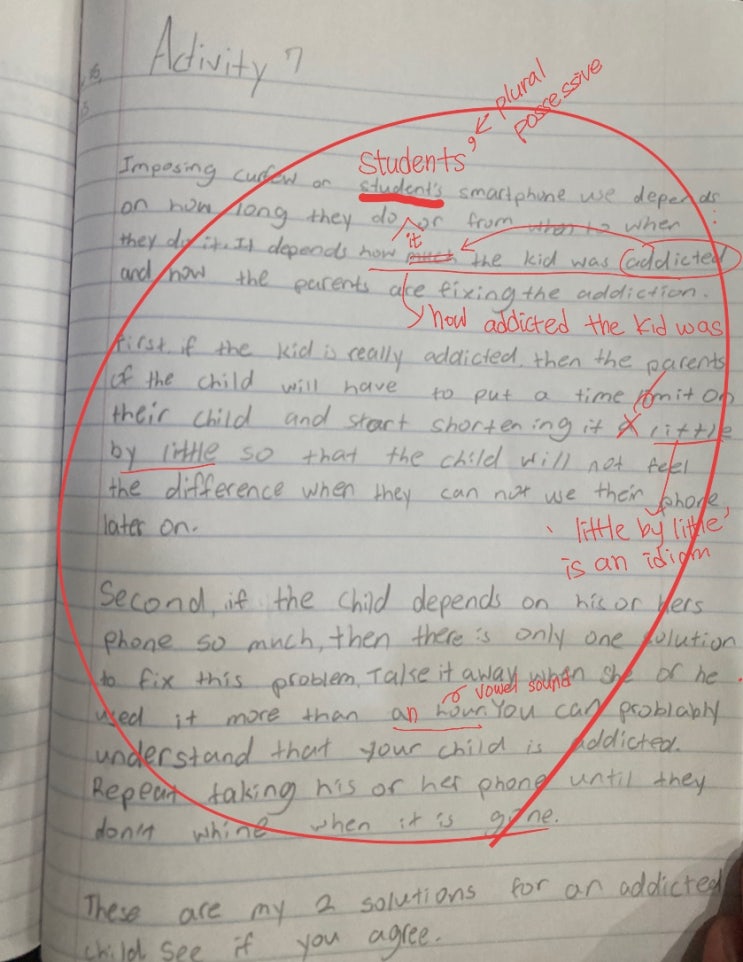 Activity 7
plural
possessive
Students'
Imposing curfew on student's smartphone use depends
on how long they do or from when to when
it
they do it. It depends how much the kid was addicted
and how the parents are fixing the addiction.
how addicted the kid was
First, if the kid is really addicted, then the parents
of the child will have to put a time limit on
their child and start shortening it a little
by little so that the child will not feel
the difference when they can not use their phone
later on.
'little by little'
is an idiom
Second, if the child depends on his or hers
phone so much, then there is only one solution
to fix this problem. Take it away when she or he
vowel sound
used it more than an hour. You can problably
understand that your child is addicted.
Repeat taking his or her phone until they
don't whine when it is gone.
These are my 2 solutions for an addicted
child see if you agree.